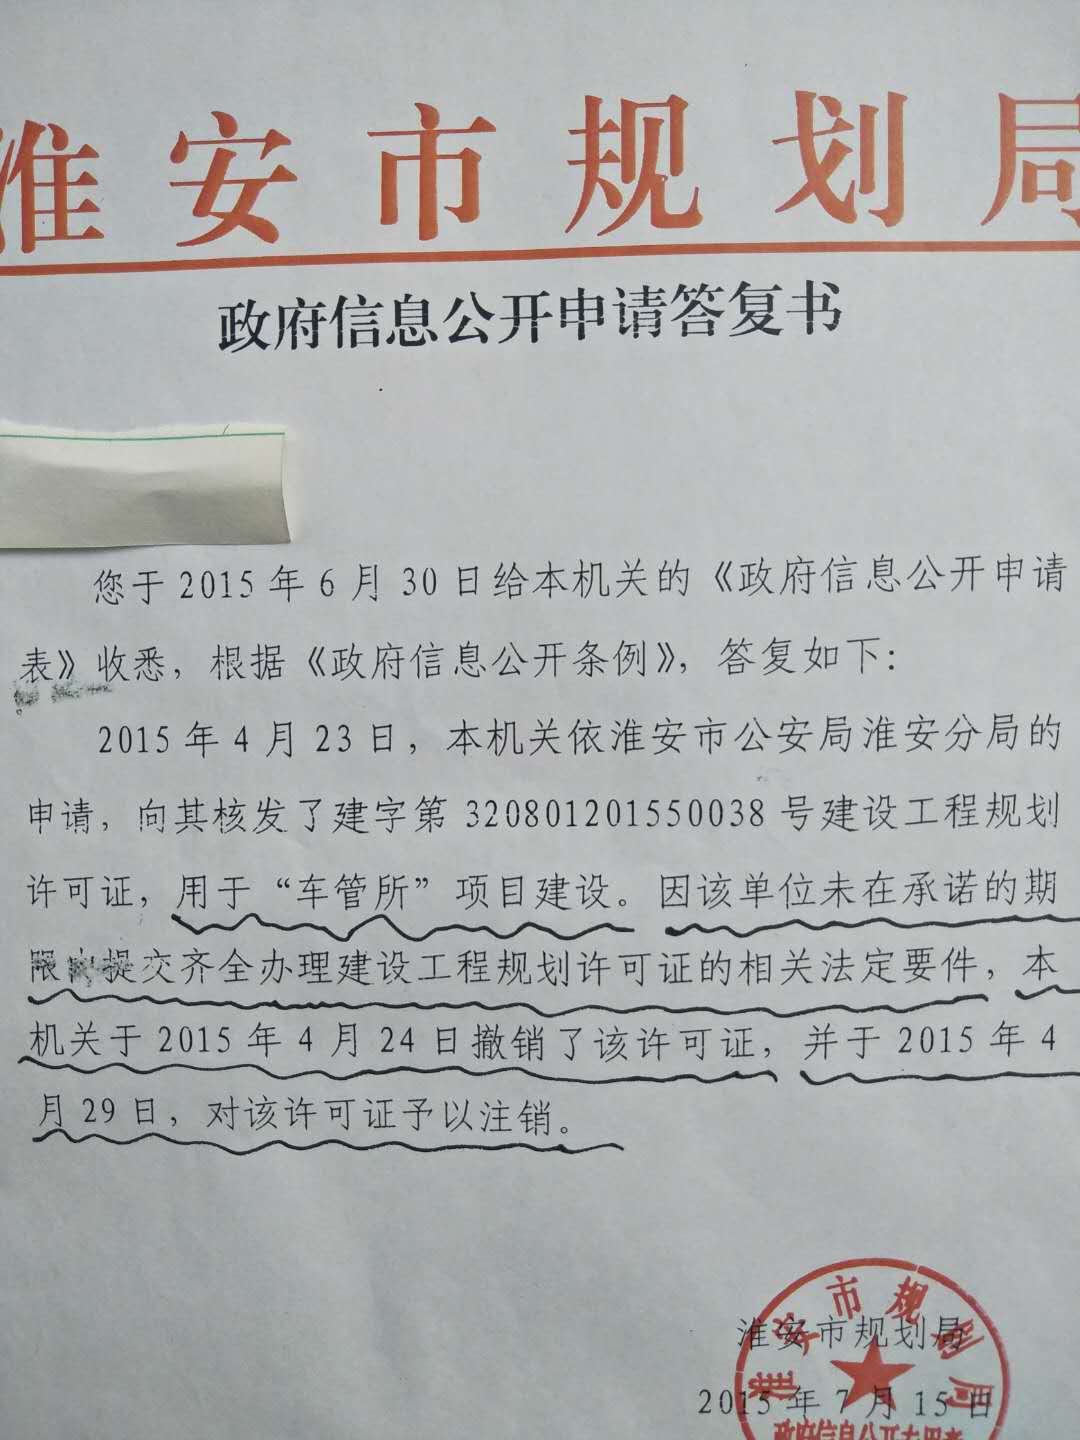 淮安市规划局
政府信息公开申请答复书
您于2015年6月30日给本机关的《政府信息公开申请
表》收悉，根据《政府信息公开条例》，答复如下：
2015年4月23日，本机关依淮安市公安局淮安分局的
申请，向其核发了建字第320801201550038号建设工程规划
许可证，用于“车管所”项目建设。因该单位未在承诺的期
限内提交齐全办理建设工程规划许可证的相关法定要件，本
机关于2015年4月24日撤销了该许可证，并于2015年4
月29日，对该许可证予以注销。
淮安市规划局
淮安市规划局
2015年7月15日
政府信息公开专用章